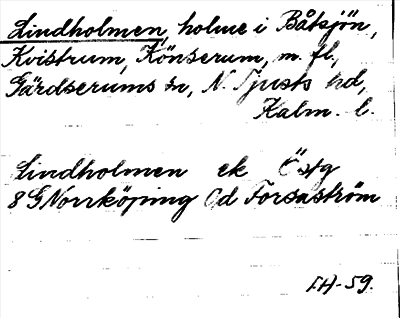 Lindholmen, holme i Båtsjön,
Kvistrum, Könserum, m. fl.,
Gärdserums sn, N. Tjusts hd,
Kalm. l.
Lindholmen ek Östg
8 G Norrköping Od Forsaström
IH-59.